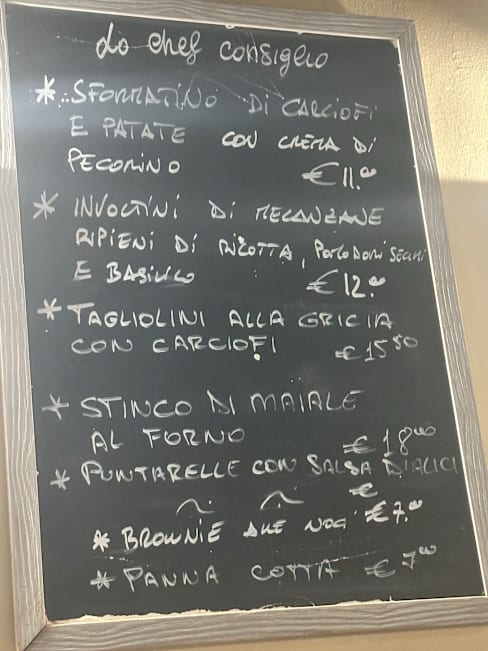 Lo chef consiglia
* SFORMATINO DI CARCIOFI
E PATATE CON CREMA DI
PECORINO € 11.00
* INVOLTINI DI MELANZANE
RIPIENI DI RICOTTA, POMODORI SECCHI
E BASILICO € 12.00
* TAGLIOLINI ALLA GRICIA
CON CARCIOFI € 15 50
* STINCO DI MAIALE
AL FORNO € 18 00
* PUNTARELLE CON SALSA D'ALICI
€
* BROWNIE ALLE NOCI € 7.00
* PANNA COTTA € 7 00